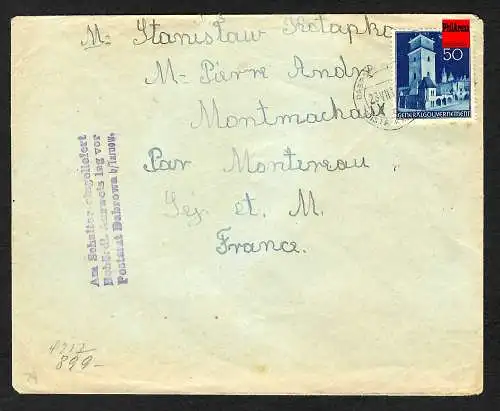 M. Stanisław Potapko
M. Pierre André
Montmachaux
Par Montereau
Sej. et. M.
France.
Philarena
50
GENERALGOUVERNEMENT
Am Schalter eingeliefert
Behördl. Ausweis lag vor
Postamt Dabrowa b/Tarnow.
899-